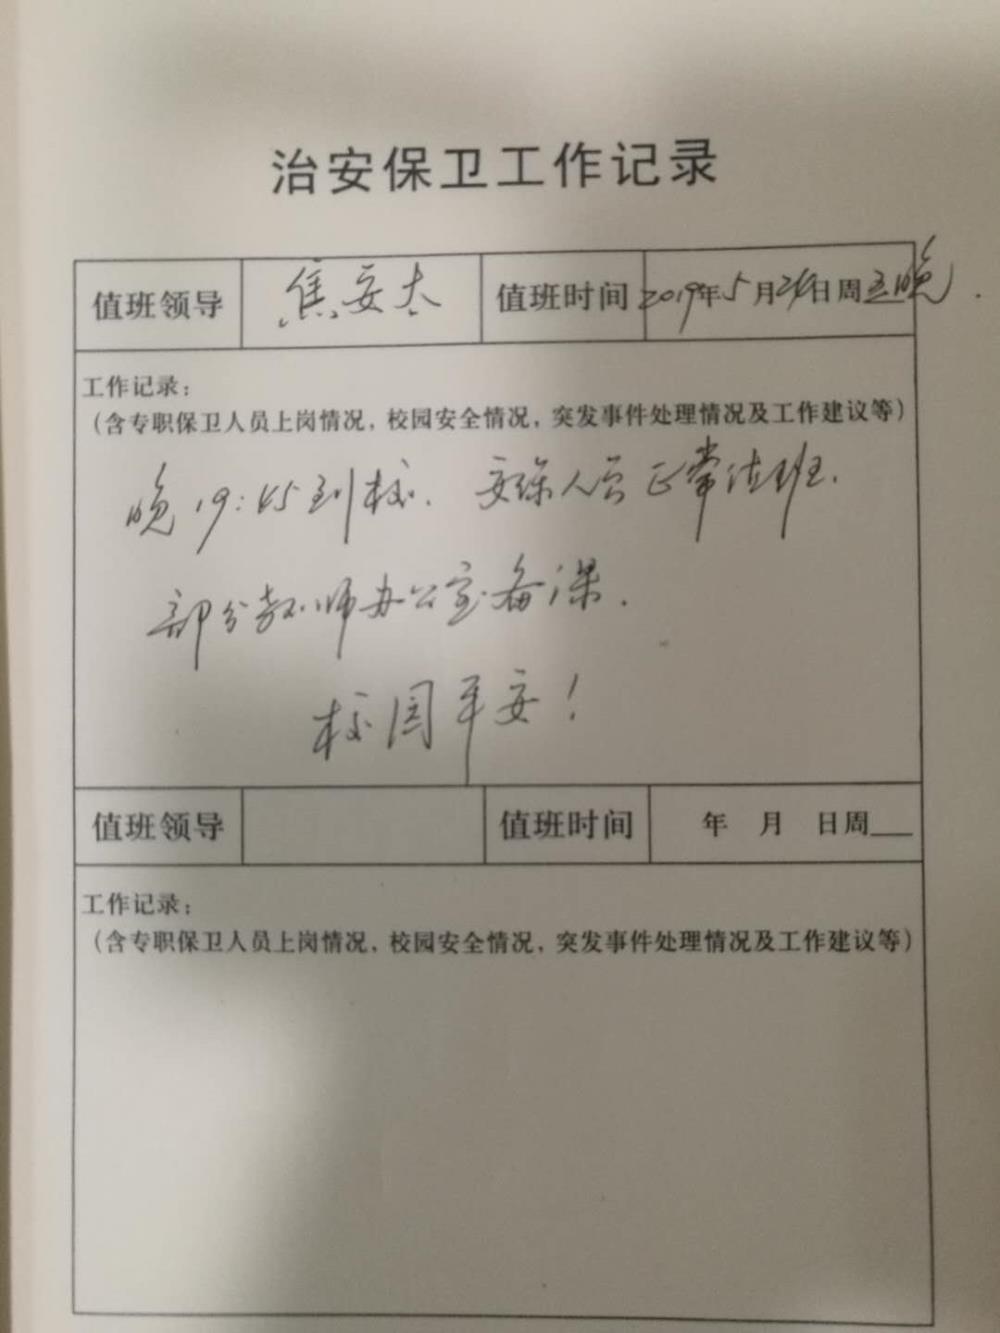 治安保卫工作记录
值班领导 焦安太 值班时间 2019年5月24日周五晚.
工作记录：
（含专职保卫人员上岗情况，校园安全情况，突发事件处理情况及工作建议等）
晚19:45到校. 安保人员正常值班.
部分教师办公室备课.
校园平安！
值班领导 值班时间 年 月 日周
工作记录：
（含专职保卫人员上岗情况，校园安全情况，突发事件处理情况及工作建议等）